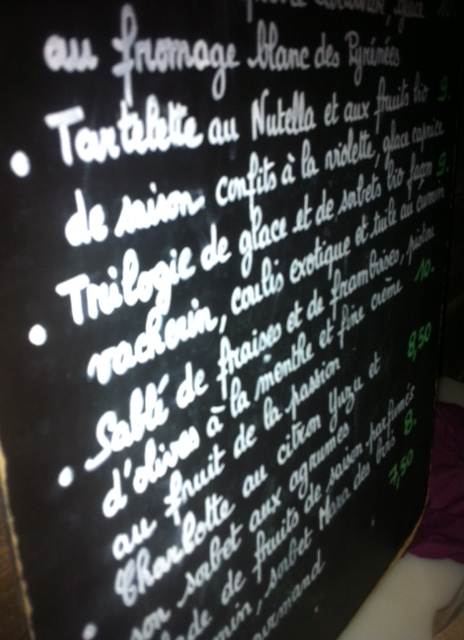 glace
au fromage blanc des Pyrénées
• Tartelette au Nutella et aux fruits bio 9.
de saison confits à la violette, glace caprice
• Trilogie de glace et de sorbets bio façon 9.
vacherin, coulis exotique et tuile au cumin
• Sablé de fraises et de framboises, pistou 10.
d'olives à la menthe et fine crème
au fruit de la passion 8,50
Charlotte au citron Yuzu et
son sorbet aux agrumes
de fruits de saison parfumés 8.
sorbet Mara des bois 7,50